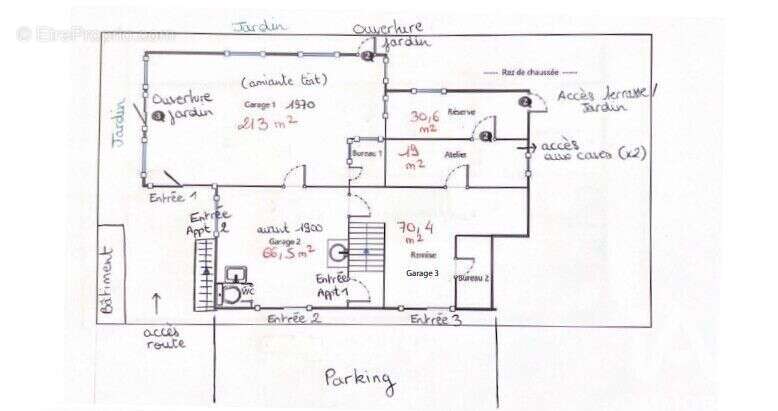 © EtreProprio.com
Jardin
Ouverture
jardin
Rez de chaussée
(amiante toit)
Garage 1 1970
213 m²
Ouverture
jardin
Jardin
30,6
m²
Réserve
Accès terrasse/
Jardin
Bureau 1
19
m²
Atelier
accès
aux caves (x2)
Entrée 1
Entrée
Appt 2
avant 1900
Garage 2
66,5 m²
70,4
m²
Remise
Garage 3
Entrée
Appt 1
Bureau 2
WC
Bâtiment
accès
route
Entrée 2
Entrée 3
Parking